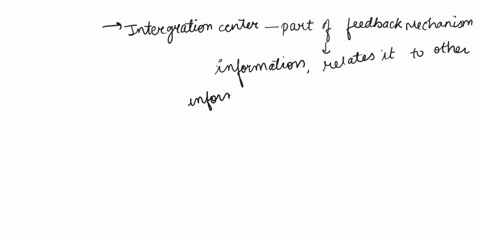 → Intergration center — part of feedback Mechanism
↓
information, relates it to other
infor